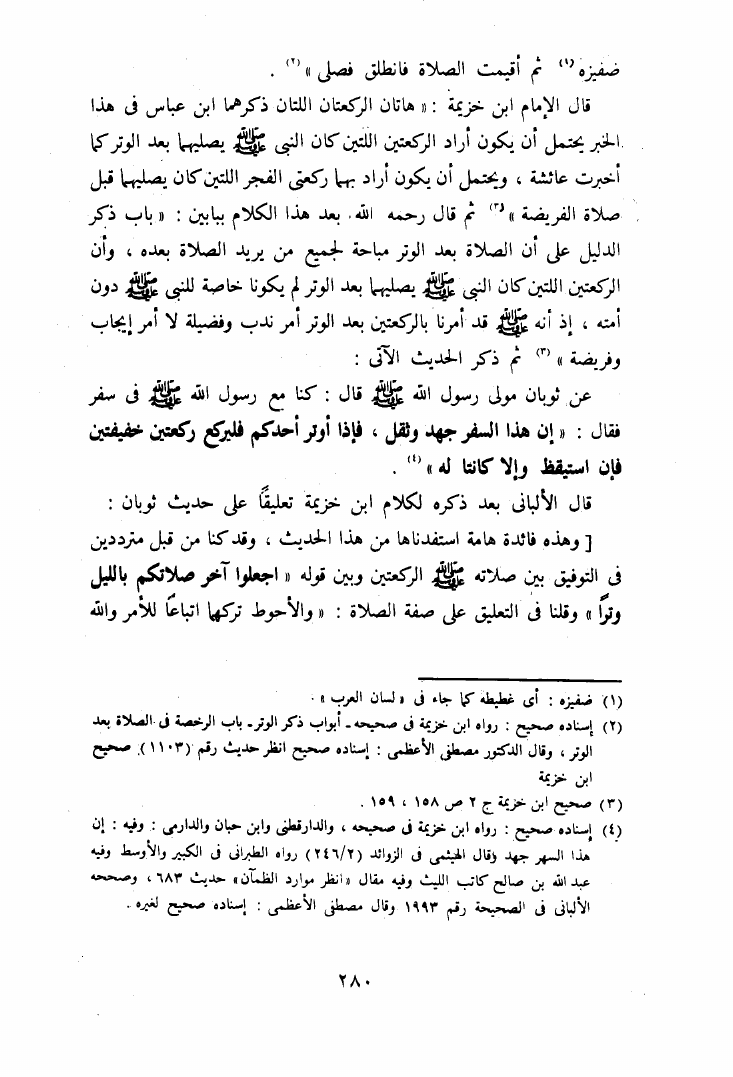 ضفيزه(١) ثم أقيمت الصلاة فانطلق فصلى »(٢) .
قال الإمام ابن خزيمة : « هاتان الركعتان اللتان ذكرهما ابن عباس فى هذا
الخبر يحتمل أن يكون أراد الركعتين اللتين كان النبى ﷺ يصليهما بعد الوتر كما
أخبرت عائشة ، ويحتمل أن يكون أراد بهما ركعتى الفجر اللتين كان يصليهما قبل
صلاة الفريضة »(٣) ثم قال رحمه الله بعد هذا الكلام ببابين : « باب ذكر
الدليل على أن الصلاة بعد الوتر مباحة لجميع من يريد الصلاة بعده ، وأن
الركعتين اللتين كان النبى ﷺ يصليهما بعد الوتر لم يكونا خاصة للنبى ﷺ دون
أمته ، إذ أنه ﷺ قد أمرنا بالركعتين بعد الوتر أمر ندب وفضيلة لا أمر إيجاب
وفريضة »(٣) ثم ذكر الحديث الآتى :
عن ثوبان مولى رسول الله ﷺ قال : كنا مع رسول الله ﷺ فى سفر
فقال : « إن هذا السفر جهد وثقل ، فإذا أوتر أحدكم فليركع ركعتين خفيفتين
فإن استيقظ وإلا كانتا له »(٤) .
قال الألبانى بعد ذكره لكلام ابن خزيمة تعليقًا على حديث ثوبان :
[ وهذه فائدة هامة استفدناها من هذا الحديث ، وقد كنا من قبل مترددين
فى التوفيق بين صلاته ﷺ الركعتين وبين قوله « اجعلوا آخر صلاتكم بالليل
وترًا » وقلنا فى التعليق على صفة الصلاة : « والأحوط تركها اتباعًا للأمر والله
(١) ضفيزه : أى غطيطه كما جاء فى « لسان العرب » .
(٢) إسناده صحيح : رواه ابن خزيمة فى صحيحه - أبواب ذكر الوتر - باب الرخصة فى الصلاة بعد
الوتر ، وقال الدكتور مصطفى الأعظمى : إسناده صحيح انظر حديث رقم (١١٠٣) صحيح
ابن خزيمة
(٣) صحيح ابن خزيمة ج ٢ ص ١٥٨ ، ١٥٩ .
(٤) إسناده صحيح : رواه ابن خزيمة فى صحيحه ، والدارقطنى وابن حبان والدارمى : وفيه : إن
هذا السهر جهد وقال الهيثمى فى الزوائد (٢٤٦/٢) رواه الطبرانى فى الكبير والأوسط وفيه
عبد الله بن صالح كاتب الليث وفيه مقال « انظر موارد الظمآن » حديث ٦٨٣ ، وصححه
الألبانى فى الصحيحة رقم ١٩٩٣ وقال مصطفى الأعظمى : إسناده صحيح لغيره .
٢٨٠